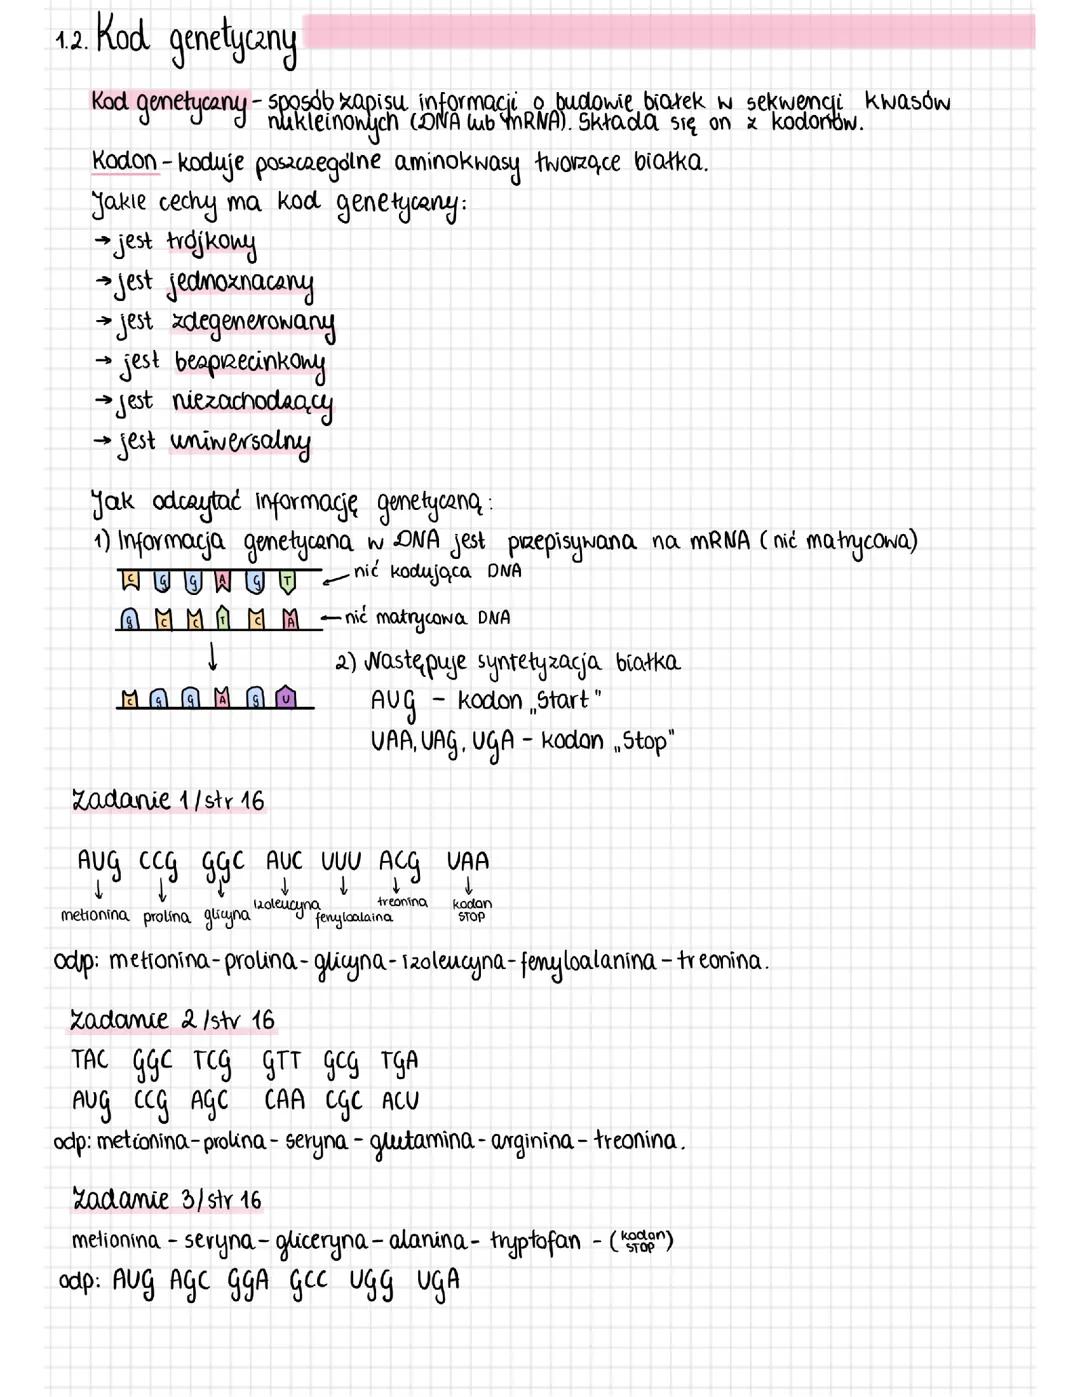 1.2. Kod genetyczny
Kod genetyczny - sposób zapisu informacji o budowie białek w sekwencji kwasów
nukleinowych (DNA lub mRNA). Składa się on z kodonów.
Kodon - koduje poszczególne aminokwasy tworzące białka.
Jakie cechy ma kod genetyczny:
→ jest trójkowy
→ jest jednoznaczny
→ jest zdegenerowany
→ jest bezprzecinkowy
→ jest niezachodzący
→ jest uniwersalny
Jak odczytać informację genetyczną:
1) Informacja genetyczna w DNA jest przepisywana na mRNA (nić matrycowa)
C G G A G T ← nić kodująca DNA
G C C T C A ← nić matrycowa DNA
↓
2) Następuje syntetyzacja białka
C G G A G U
AUG - kodon „Start"
UAA, UAG, UGA - kodon „Stop"
Zadanie 1/str 16
AUG CCG GGC AUC UUU ACG UAA
↓ ↓ ↓ ↓ ↓ ↓ ↓
metionina prolina glicyna izoleucyna fenyloalaina treonina kodon STOP
odp: metionina-prolina-glicyna-izoleucyna-fenyloalanina-treonina.
Zadanie 2/str 16
TAC GGC TCG GTT GCG TGA
AUG CCG AGC CAA CGC ACU
odp: metionina-prolina-seryna-glutamina-arginina-treonina.
Zadanie 3/str 16
metionina - seryna - gliceryna - alanina - tryptofan - (kodon STOP)
odp: AUG AGC GGA GCC UGG UGA